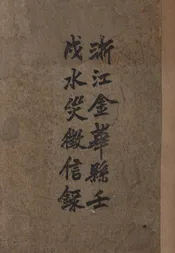 浙江金華縣壬
戌水災徵信錄